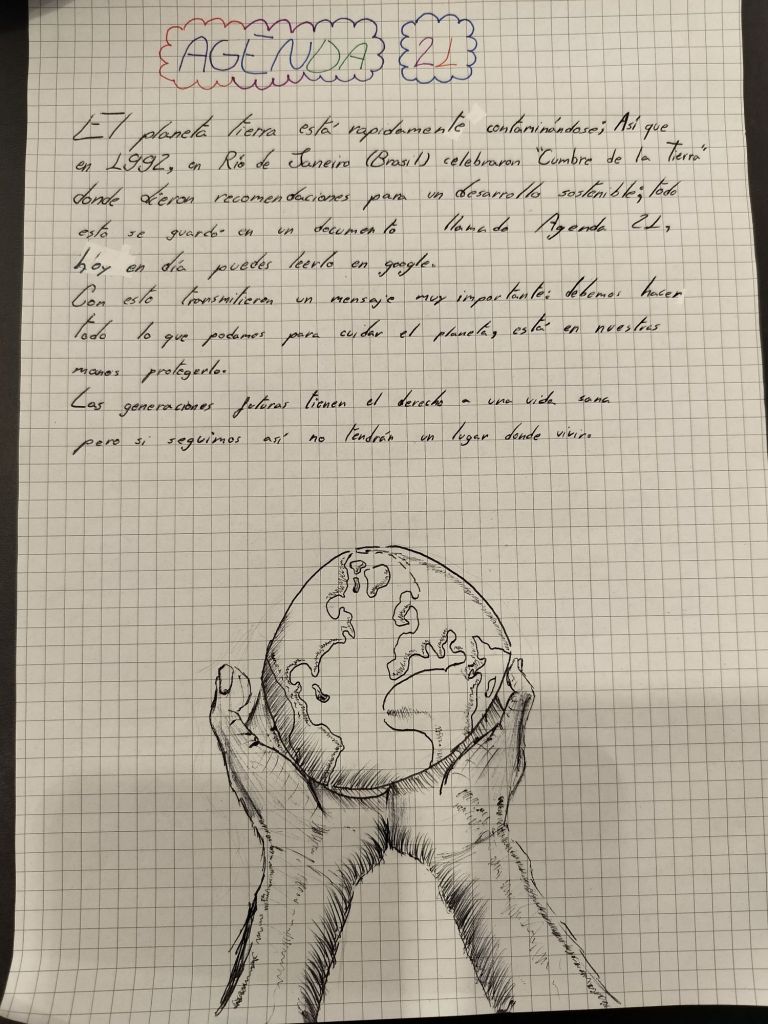 AGENDA 21
El planeta tierra está rapidamente contaminándose; Así que
en 1992, en Río de Janeiro (Brasil) celebraron "Cumbre de la Tierra"
donde dieron recomendaciones para un desarrollo sostenible; todo
esto se guardó en un documento llamado Agenda 21,
hoy en día puedes leerlo en google.
Con esto transmitieron un mensaje muy importante: debemos hacer
todo lo que podamos para cuidar el planeta, está en nuestras
manos protegerlo.
Las generaciones futuras tienen el derecho a una vida sana
pero si seguimos así no tendrán un lugar donde vivir.